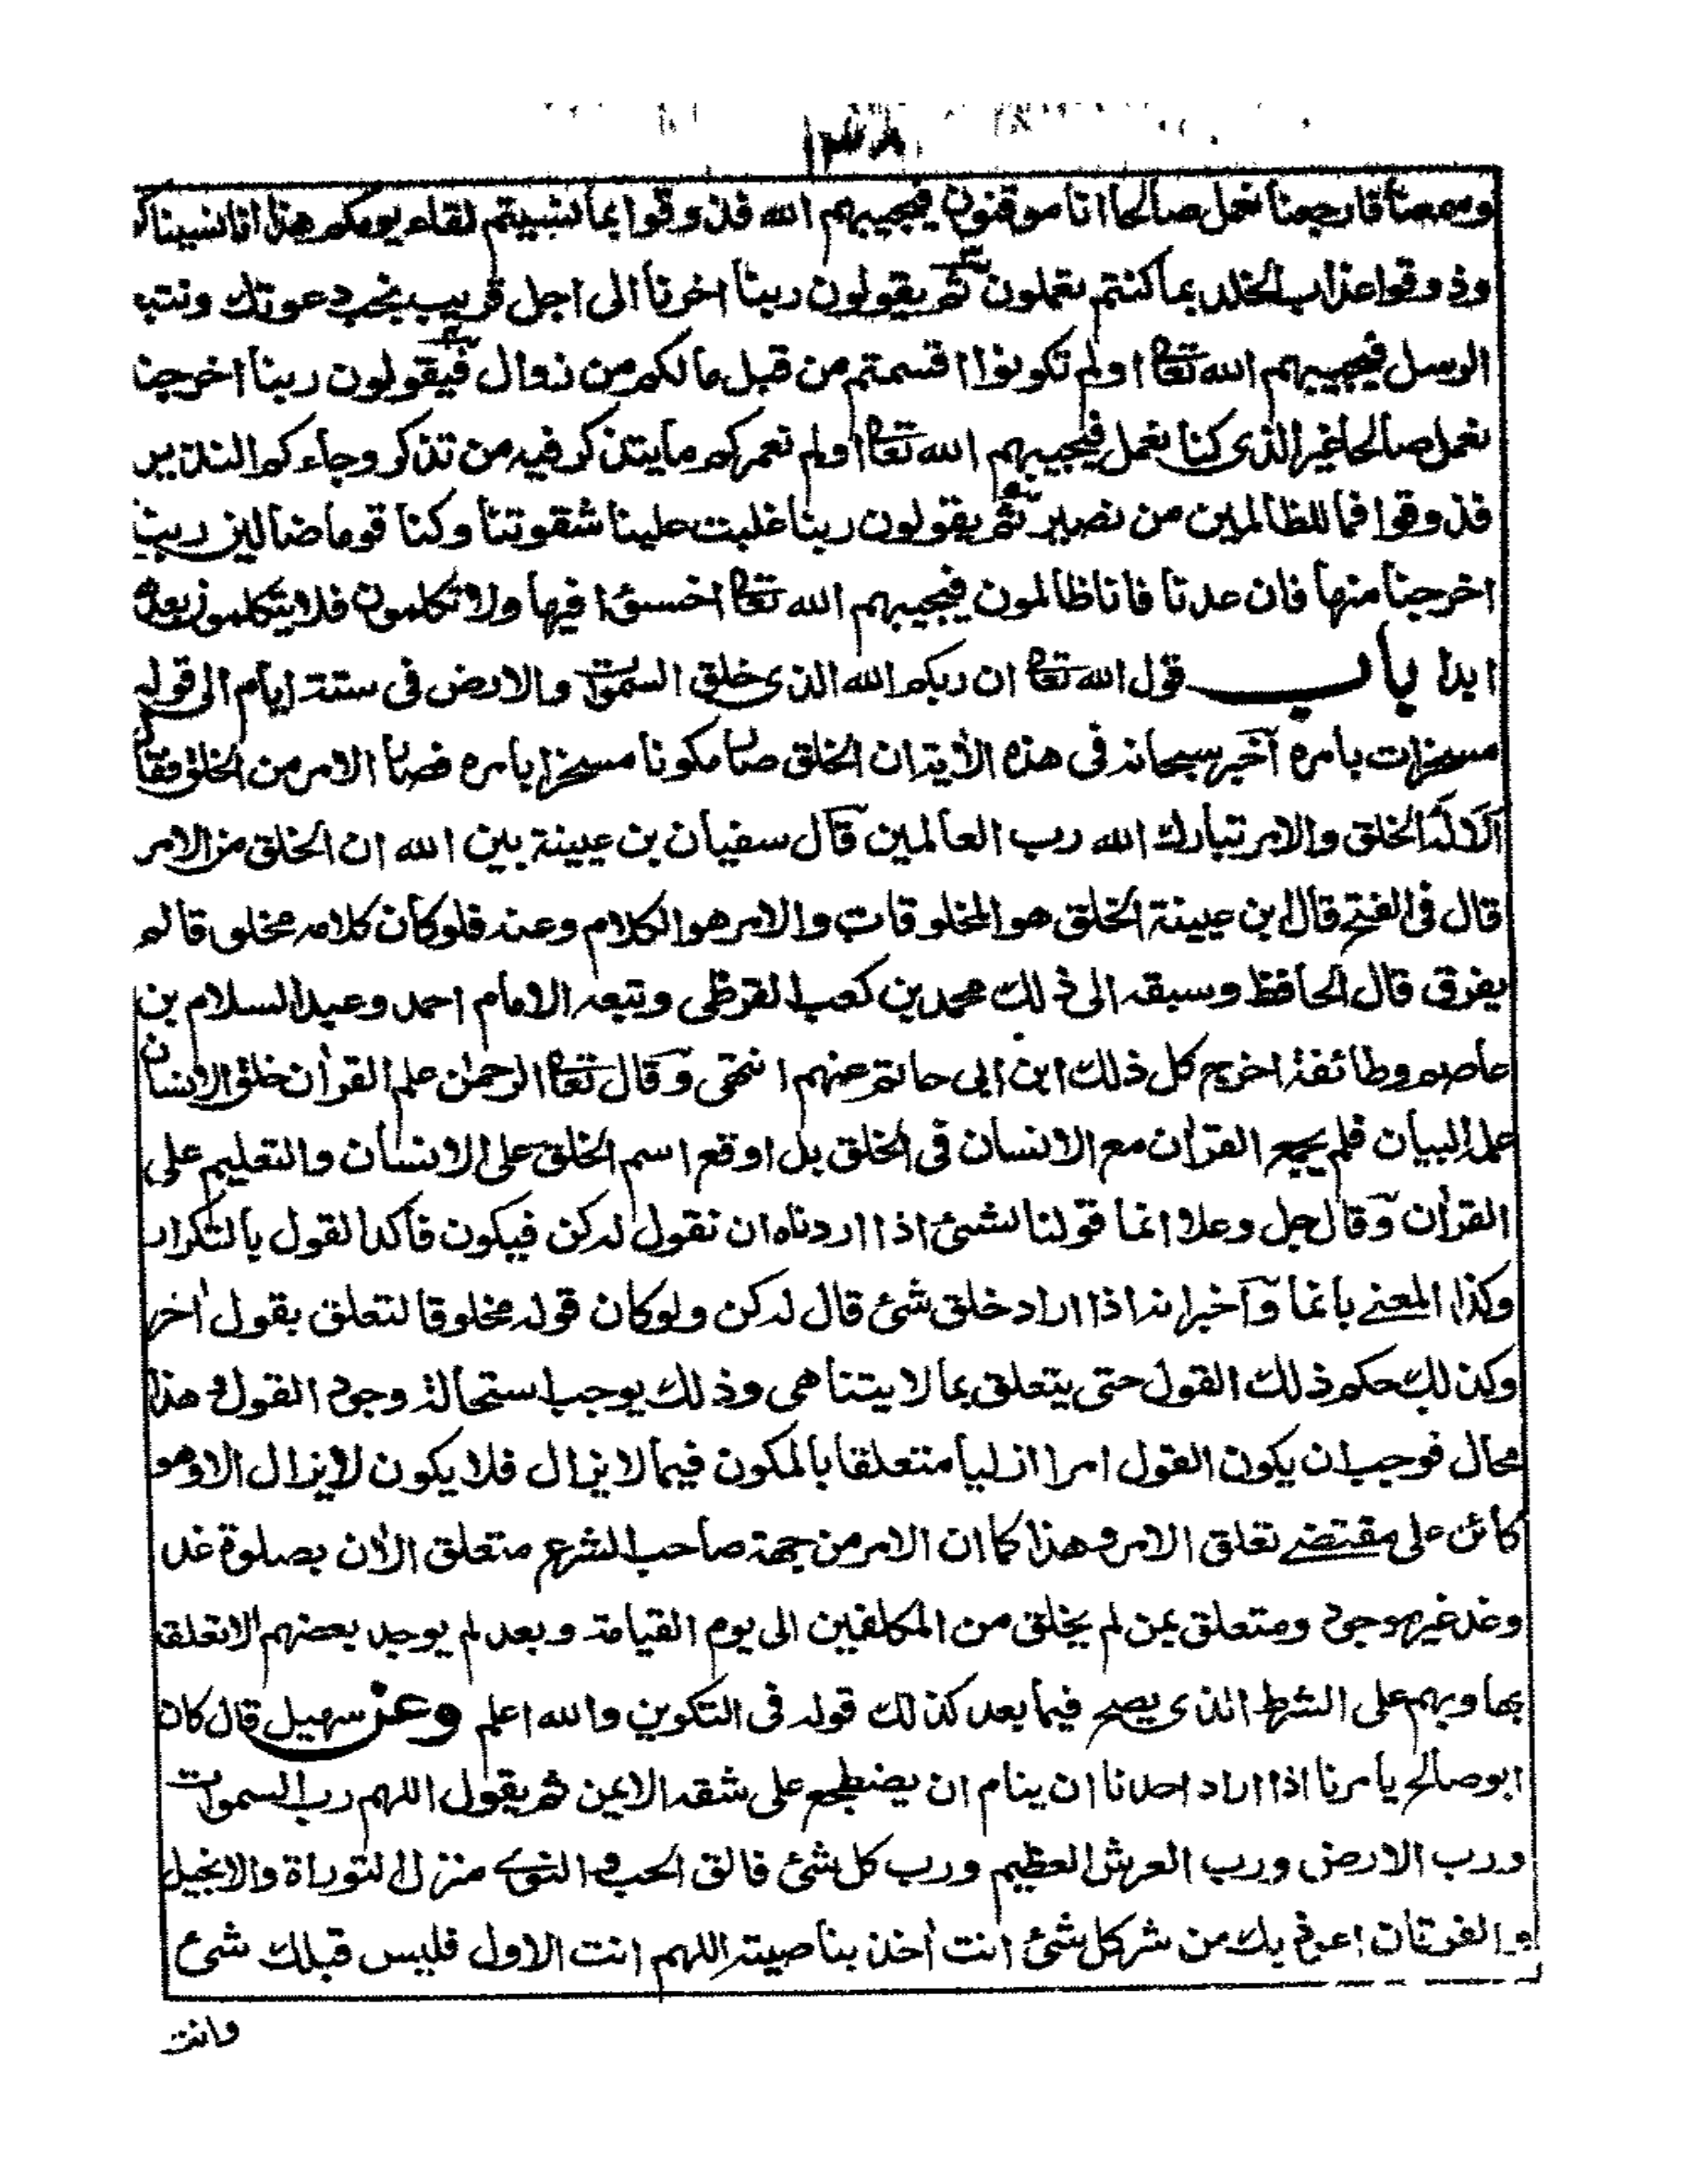 ١٣٨
وسمعنا فارجعنا نعمل صالحا انا موقنون فيجيبهم الله فذوقوا بما نسيتم لقاء يومكم هذا انا نسيناكم
وذوقوا عذاب الخلد بما كنتم تعملون ثم يقولون ربنا اخرنا الى اجل قريب نجب دعوتك ونتبع
الرسل فيجيبهم الله تعا اولم تكونوا اقسمتم من قبل ما لكم من زوال فيقولون ربنا اخرجنا
نعمل صالحا غير الذى كنا نعمل فيجيبهم الله تعا اولم نعمركم ما يتذكر فيه من تذكر وجاءكم النذير
فذوقوا فما للظالمين من نصير ثم يقولون ربنا غلبت علينا شقوتنا وكنا قوما ضالين ربنا
اخرجنا منها فان عدنا فانا ظالمون فيجيبهم الله تعا اخسؤا فيها ولا تكلمون فلا يتكلمون بعدها
ابدا باب قول الله تعا ان ربكم الله الذى خلق السموت والارض فى ستة ايام الى قوله
مسخرات بامره آخبر سبحانه فى هذه الأية ان الخلق صار مكونا مسخرا بامره فصار الامر من الخلق فقال
الا له الخلق والامر تبارك الله رب العالمين قال سفيان بن عيينة بين الله ان الخلق من الامر
قال فى الفتح قال ابن عيينة الخلق هو المخلوقات والامر هو الكلام وعنه فلو كان كلامه مخلوقا لم
يفرق قال الحافظ وسبقه الى ذلك محمد بن كعب القرظى وتبعه الامام احمد وعبد السلام بن
عاصم وطائفة اخرج كل ذلك ابن ابى حاتم عنهم انتهى وقال تعا الرحمن علم القرأن خلق الانسان
علمه البيان فلم يجمع القرأن مع الانسان فى الخلق بل اوقع اسم الخلق على الانسان والتعليم على
القرأن وقال جل وعلا انما قولنا لشئ اذا اردناه ان نقول له كن فيكون فأكد القول بالتكرار
وكذا المعنے بانما وآخبر انه اذا اراد خلق شئ قال له كن ولو كان قوله مخلوقا لتعلق بقول أخر
وكذلك حكم ذلك القول حتى يتعلق بما لا يتناهى وذلك يوجب استحالة وجود القول وهذا
محال فوجب ان يكون القول امرا ازليا متعلقا بالمكون فيما لا يزال فلا يكون لا يزال الا وهو
كائن على مقتضے تعلق الامر وهذا كما ان الامر من جهة صاحب الشرع متعلق الأن بصلوة غد
وغد غير موجود ومتعلق بمن لم يخلق من المكلفين الى يوم القيامة وبعد لم يوجد بعضهم الا تعلقه
بها وبهم على الشرط الذى يصح فيما بعد كذلك قوله فى التكوين والله اعلم وعن سهيل قال كان
ابو صالح يامرنا اذا اراد احدنا ان ينام ان يضطجع على شقه الايمن ثم يقول اللهم رب السموات
ورب الارض ورب العرش العظيم ورب كل شئ فالق الحب والنوے منزل التوراة والانجيل
والفرقان اعوذ بك من شر كل شئ انت أخذ بناصيته اللهم انت الاول فليس قبلك شئ
وانت